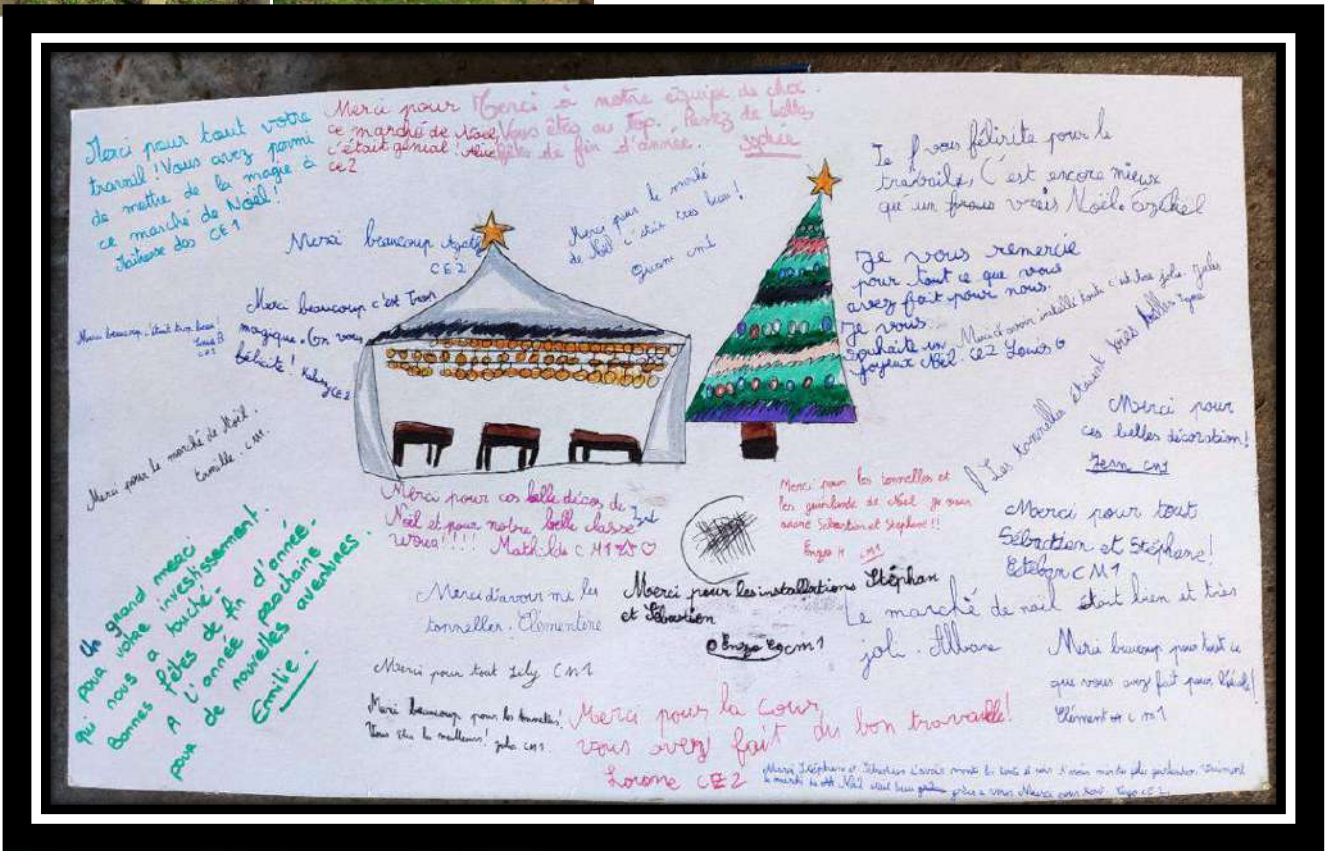 Merci pour tout votre
travail ! Vous avez permi
de mettre de la magie à
ce marché de Noël !
CE1
Merci pour
ce marché de Noël,
c'était génial ! Alice
CE2
Merci à notre équipe de choc.
Vous êtes au Top. Passez de belles
fêtes de fin d'année. Sophie
Je f vous félirite pour le
travaile, C'est encore mieux
qu'un vrais Noël. Ezékel
Merci beaucoup
CE2
Merci pour le marché
de Noël c'était tres beau !
cm1
Je vous remercie
pour tout ce que vous
avez fait pour nous.
Je vous
souhaite un
joyeux Nöel. CE2 Louis G
Merci d'avoir installé c'est très jolie. Jules
Merci beaucoup c'est Trop
magique. On vous
félicite !
CE2
Merci beaucoup, c'était trop beau !
Les tonnelles étaient très belles
Merci pour le marché de Noël.
Camille. CM1.
Merci pour
ces belles décoration !
CM1
Merci pour cos belle décos de
Noël et pour notre belle classe
woua !!!! Mathilde CM1
Merci pour les tonnelles et
les guirlande de Noël
Sébastien et Stéphane !!
Enzo H CM1
Merci pour tout
Sébastien et Stéphane !
Esteban CM1
Un grand merci
pour votre investissement
qui nous a touché.
Bonnes fêtes de fin d'année.
A l'année prochaine
pour de nouvelles aventures.
Emilie.
Merci d'avoir mi les
tonneller. Clémentine
Merci pour les installations Stéphan
et Sébastien
Enzo cm1
Le marché de noël était bien et très
joli. Albane
Merci pour tout Lily CM1
Merci beaucoup pour tout ce
que vous avez fait pour l'école !
Clément cm1
Merci beaucoup pour les tonnelles !
Vous êtes les meilleurs ! CM1
Merci pour la cour
vous avez fait du bon travaille !
Lorone CE2
Merci Stéphane et Sébastien d'avoir monté les
le marché de Noël était beau grâce a vous Merci pour tout. CE2